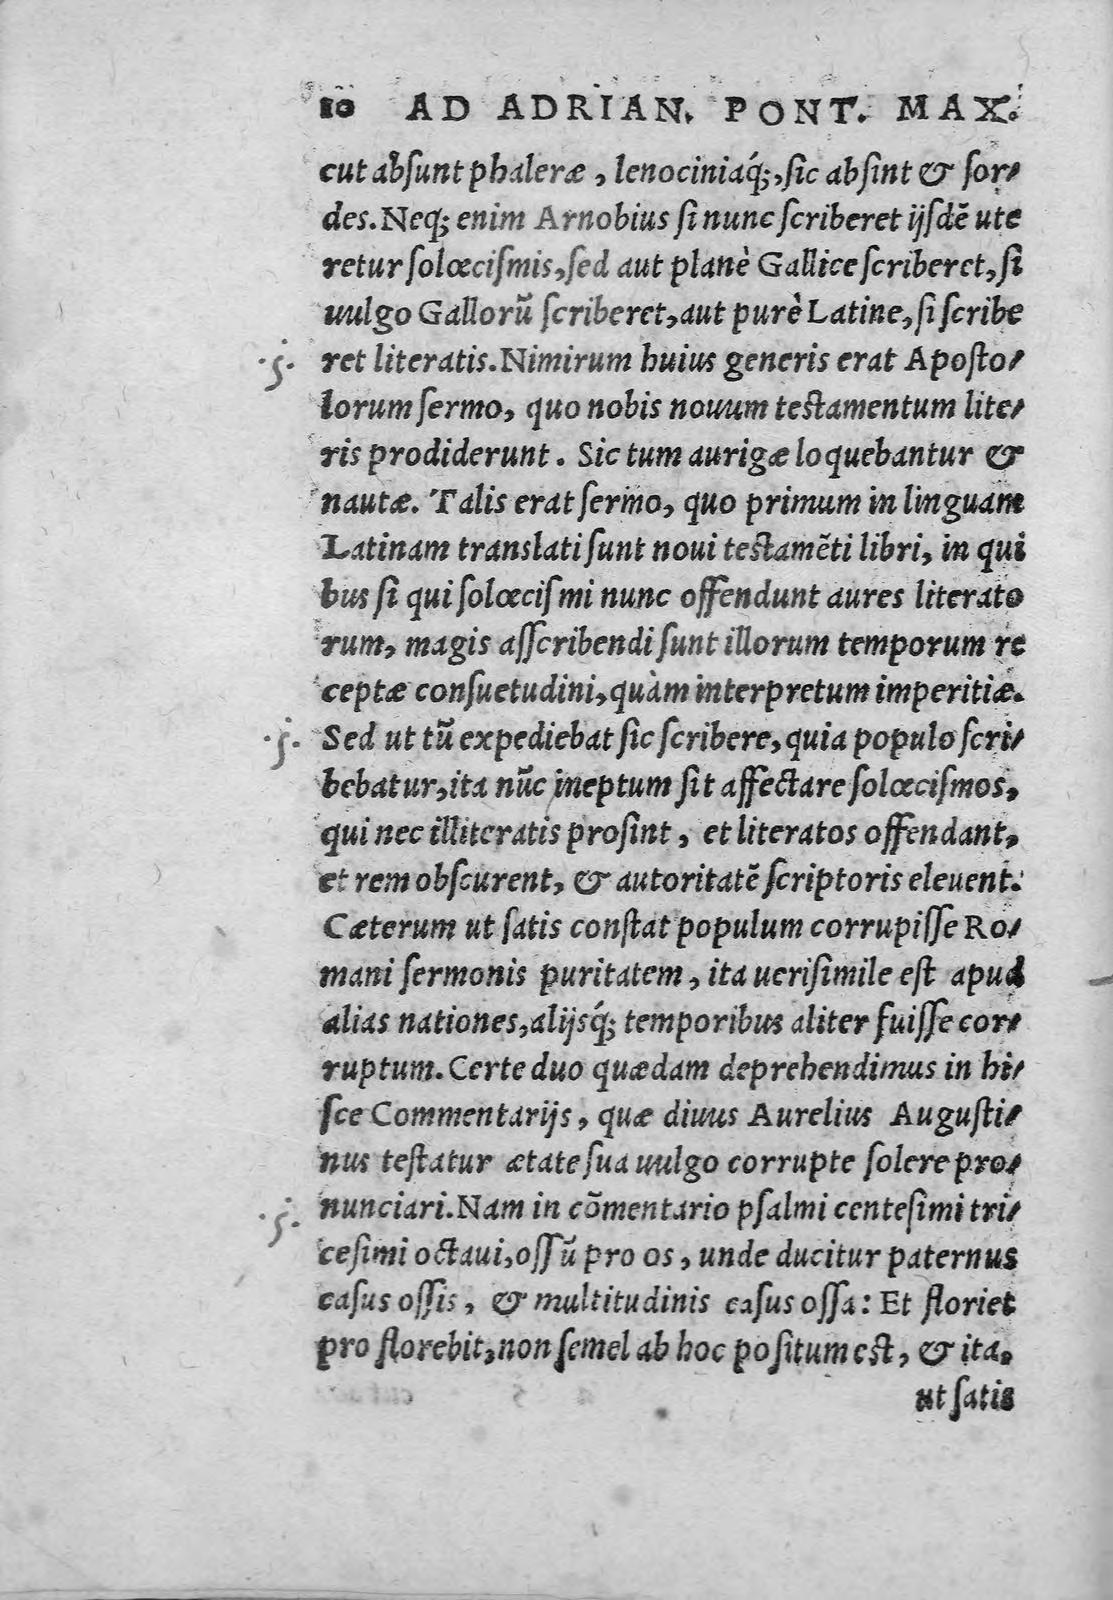 10 AD ADRIAN. PONT. MAX.
cut absunt phaleræ, lenociniaq́;, sic absint & sor-
des. Neq; enim Arnobius si nunc scriberet ijsdē ute
retur solœcismis, sed aut planè Gallice scriberet, si
uulgo Gallorū scriberet, aut purè Latine, si scribe
·ʃ· ret literatis. Nimirum huius generis erat Aposto-
lorum sermo, quo nobis nouum testamentum lite-
ris prodiderunt. Sic tum aurigæ loquebantur &
nautæ. Talis erat sermo, quo primum in linguam
Latinam translati sunt noui testamēti libri, in qui
bus si qui solœcismi nunc offendunt aures literato
rum, magis asscribendi sunt illorum temporum re
ceptæ consuetudini, quàm interpretum imperitiæ.
·ʃ· Sed ut tū expediebat sic scribere, quia populo scri-
bebatur, ita nūc ineptum sit affectare solœcismos,
qui nec illiteratis prosint, et literatos offendant,
et rem obscurent, & autoritatē scriptoris eleuent.
Cæterum ut satis constat populum corrupisse Ro-
mani sermonis puritatem, ita uerisimile est apud
alias nationes, alijsq́; temporibus aliter fuisse cor-
ruptum. Certe duo quædam deprehendimus in hi-
sce Commentarijs, quæ diuus Aurelius Augusti-
nus testatur ætate sua uulgo corrupte solere pro-
·ʃ· nunciari. Nam in cōmentario psalmi centesimi tri-
cesimi octaui, ossū pro os, unde ducitur paternus
casus ossis, & multitudinis casus ossa: Et floriet
pro florebit, non semel ab hoc positum est, & ita,
ut satis